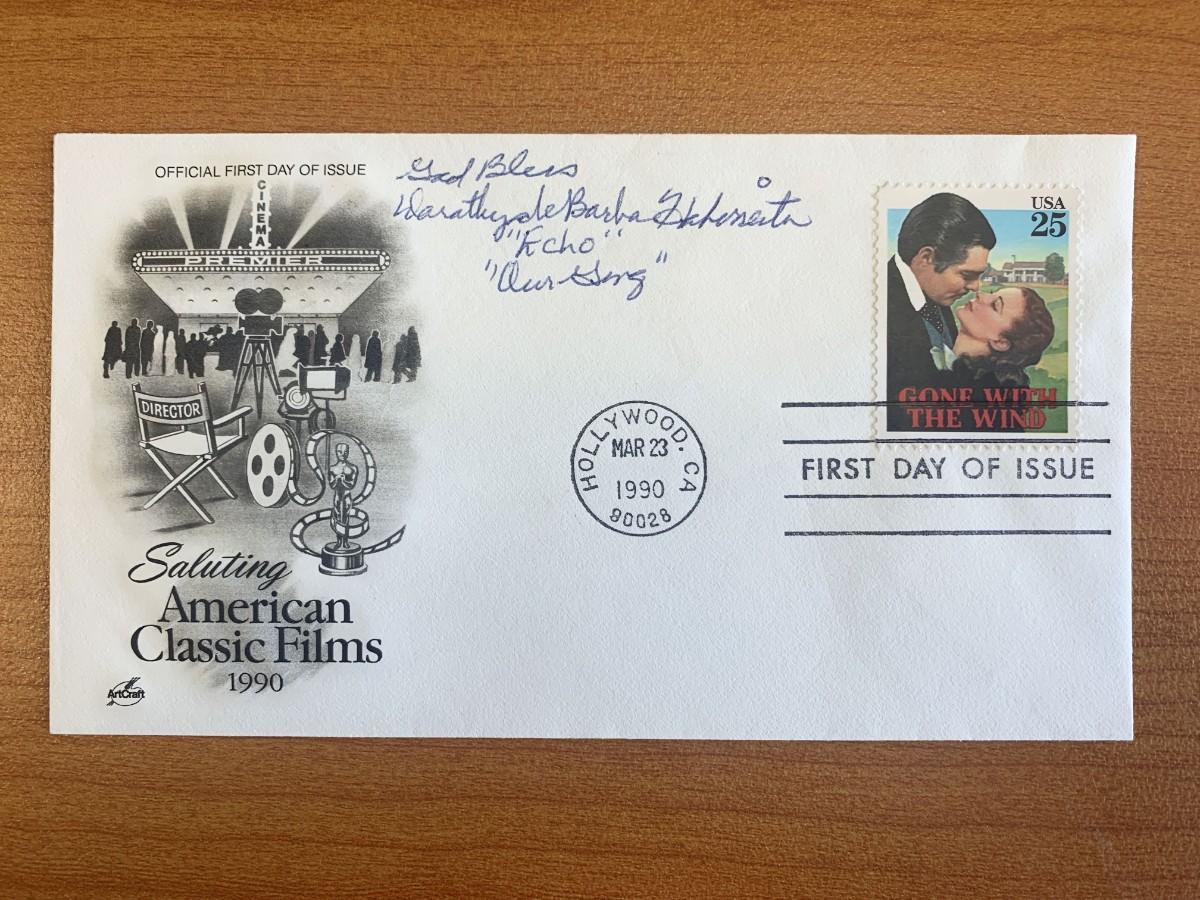 OFFICIAL FIRST DAY OF ISSUE
CINEMA
PREMIER
DIRECTOR
Saluting
American
Classic Films
1990
ArtCraft
God Bless
Dorothy de Barba
"Echo"
"Our Gang"
HOLLYWOOD, CA
MAR 23
1990
90028
USA
25
GONE WITH
THE WIND
FIRST DAY OF ISSUE